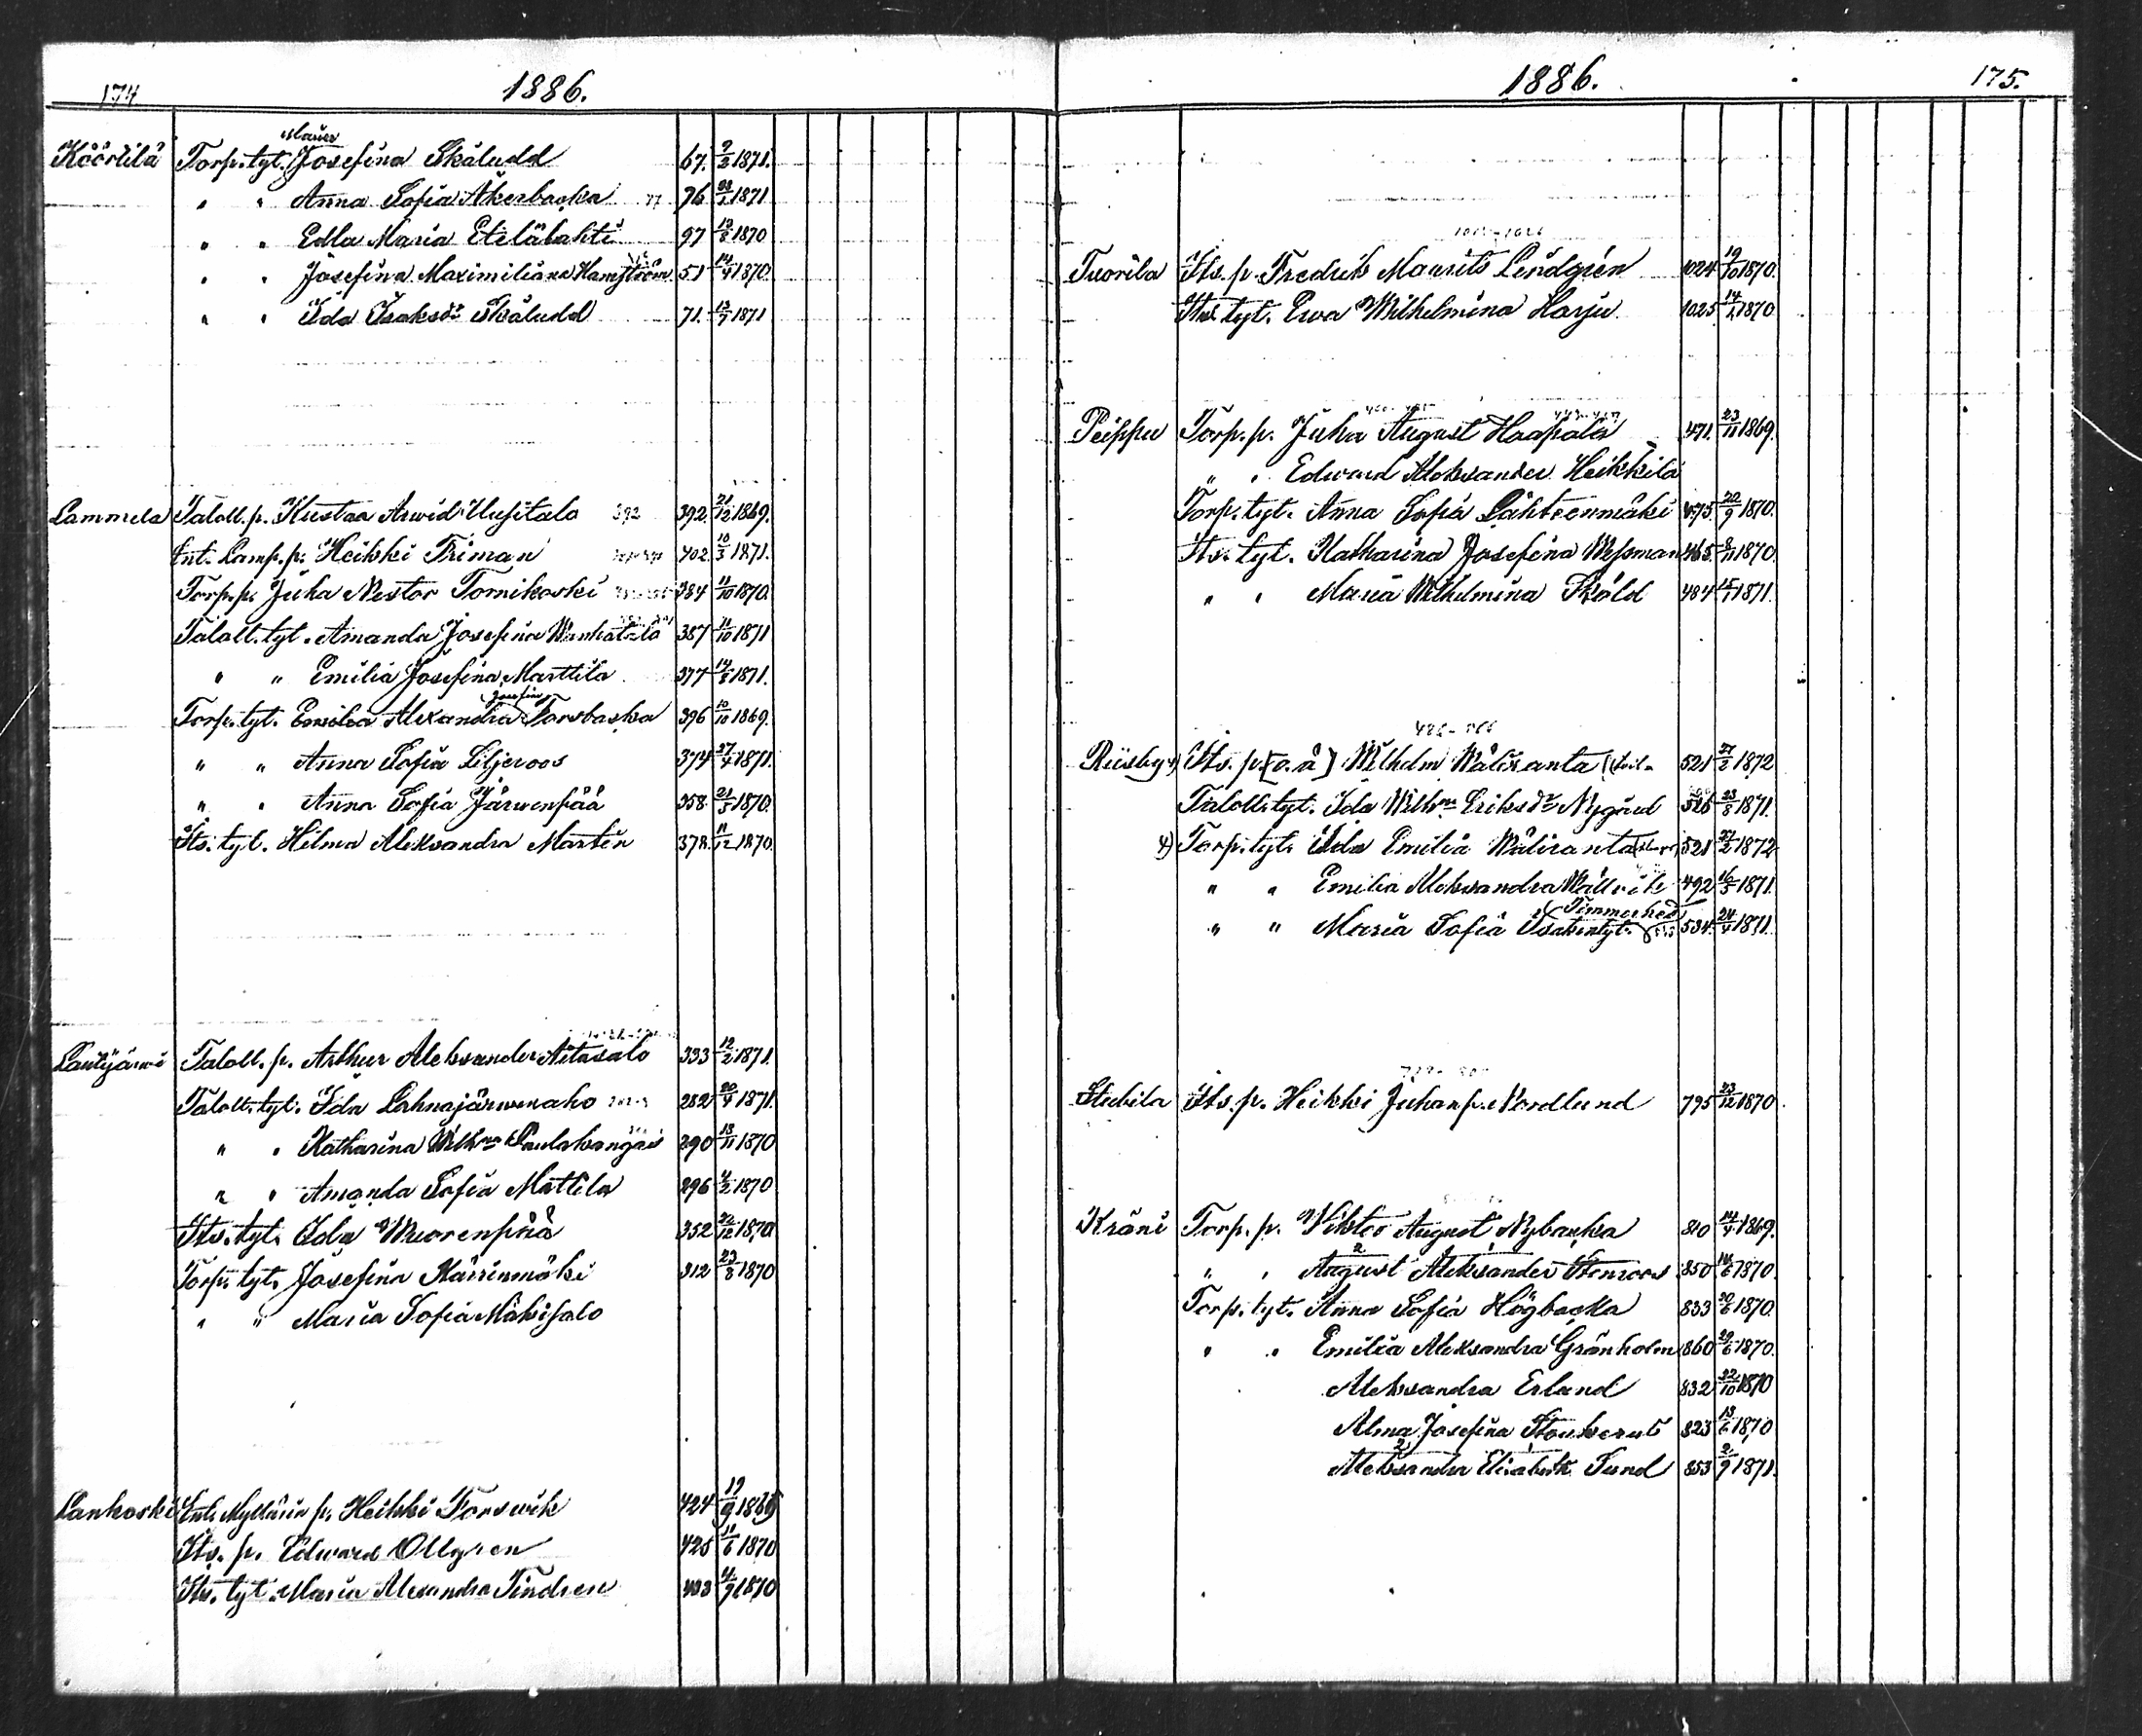 174 1886.
Maria
Köörtilä Torp. tyt. Josefina Skäludd 67. 9/2 1871.
" " Anna Sofia Åkerbacka 77 76 1871
" " Edla Maria Etelälahti 97 1870
" " Josefina Maximiliana Hamström 51 14/4 1870.
" " Ida Isaksdr Skäludd 71. 1871
Lammela Taloll. p. Kustaa Arwid Uusitalo 392 392. 21/12 1869.
Ent. Lamp. p. Heikki Friman 402. 10/3 1871.
Torp. p. Juha Nestor Tornikoski 384 11/10 1870.
Taloll. tyt. Amanda Josefina Wanhatalo 387 11/10 1871
" " Emilia Josefina Marttila 377 1871.
Josefina
Torp. tyt. Emilia Alexandra Forsbacka 396 10/10 1869.
" " Anna Sofia Liljeroos 374 27/4 1871.
" " Anna Sofia Järwenpää 358. 21/5 1870.
Its. tyt. Hilma Aleksandra Martin 378. 11/12 1870.
Lautjärwi Taloll. p. Arthur Aleksander Aitasalo 333 12/2 1871.
Taloll. tyt. Ida Lahnajärwenaho 282 20/4 1871.
" " Katharina Wilhna Paulakangas 290 13/11 1870
" " Amanda Sofia Mattila 296 4/2 1870
Its. tyt. Ida Wuorenpää 352 1870
Torp. tyt. Josefina Kärrinmäki 312 23/8 1870
" " Maria Sofia Mäkisalo
Lankoski Ent. Myllärin p. Heikki Forswik 424 19/9 1869
Its. p. Edward Ollgren 425 11/6 1870
Its. tyt. Maria Alexandra Tindren 433 1870
1886. 175.
Tuorila Its. p. Fredrik Maurits Lindgren 1024 19/10 1870.
Its. tyt. Ewa Wilhelmina Harju 1025. 14/1 1870
Peippu Torp. p. Juha August Haapala 471. 23/11 1869.
" " Edward Aleksander Heikkilä
Torp. tyt. Anna Sofia Lähteenmäki 475 20/9 1870.
Its. tyt. Katharina Josefina Wessman 465. 1870.
" " Maria Wilhelmina Sköld 484 1871.
Riisby Its. p. [o. ä] Wilhelm Wäliranta 521 27/2 1872
Taloll. tyt. Ida Wilhna Eriksdr Nygård 526 23/8 1871.
Torp. tyt. Ida Emilia Wäliranta 521 27/2 1872
" " Emilia Aleksandra Wällvik 492 16/5 1871.
Timmerhed
" " Maria Sofia Isakintyt. 534. 24/4 1871.
Stubila Its. p. Heikki Juhanp. Nordlund 795 23/12 1870.
Kråni Torp. p. Viktor August Nybacka 810 14/4 1869.
" " August Aleksander Stenroos 850 14/6 1870.
Torp. tyt. Anna Sofia Högbacka 833 20/6 1870.
" " Emilia Aleksandra Grönholm 860 29/6 1870.
Aleksandra Erland 832 22/10 1870
Alma Josefina 823 13/6 1870
Aleksandra Elisabeth Sund 853 2/9 1871.